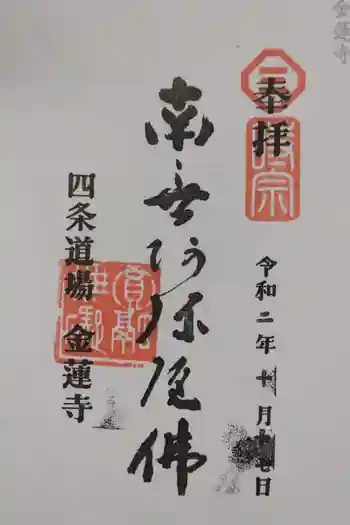 金蓮寺
奉拝
時宗
令和二年十月十七日
南無阿弥陀佛
四条道場 金蓮寺